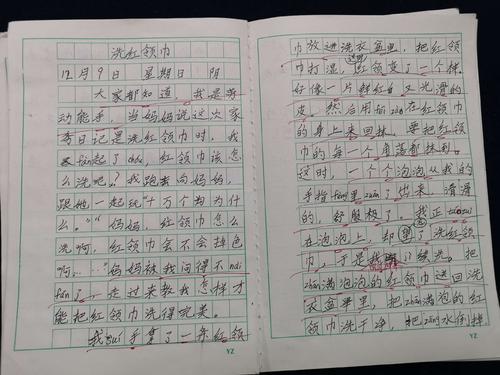 洗红领巾
12月9日 星期日 阴
大家都知道，我是劳
动能手，当妈妈说这次家
务日记是洗红领巾时，我
fán起了chóu，红领巾该怎
么洗呢？我跑去向妈妈，
跟她一起玩"十万个为什
么。""妈妈，红领巾怎么
洗啊，红领巾会不会掉色
啊，……妈妈被我问得不nài
fán了，走过来教我怎样才
能把红领巾洗得完美。
我suí手拿了一条红领
巾放进洗衣盆里，把红领
巾打湿，这时红领变了一个样
好像一片鲜红且又光滑的
皮。然后用féi zào在红领巾
的身上来回抹，要把红领
巾的每一个角落都抹到。
这时，一个个泡泡从我的
手指fèng里zuān了出来，滑滑
的，舒服极了。我正
在泡泡上，却忘了洗红领
巾，于是我继续洗。把
zhān满泡泡的红领巾进回洗
衣盆里，把zhān满泡的红
领巾洗干净，把zāng水倒掉
YZ
YZ